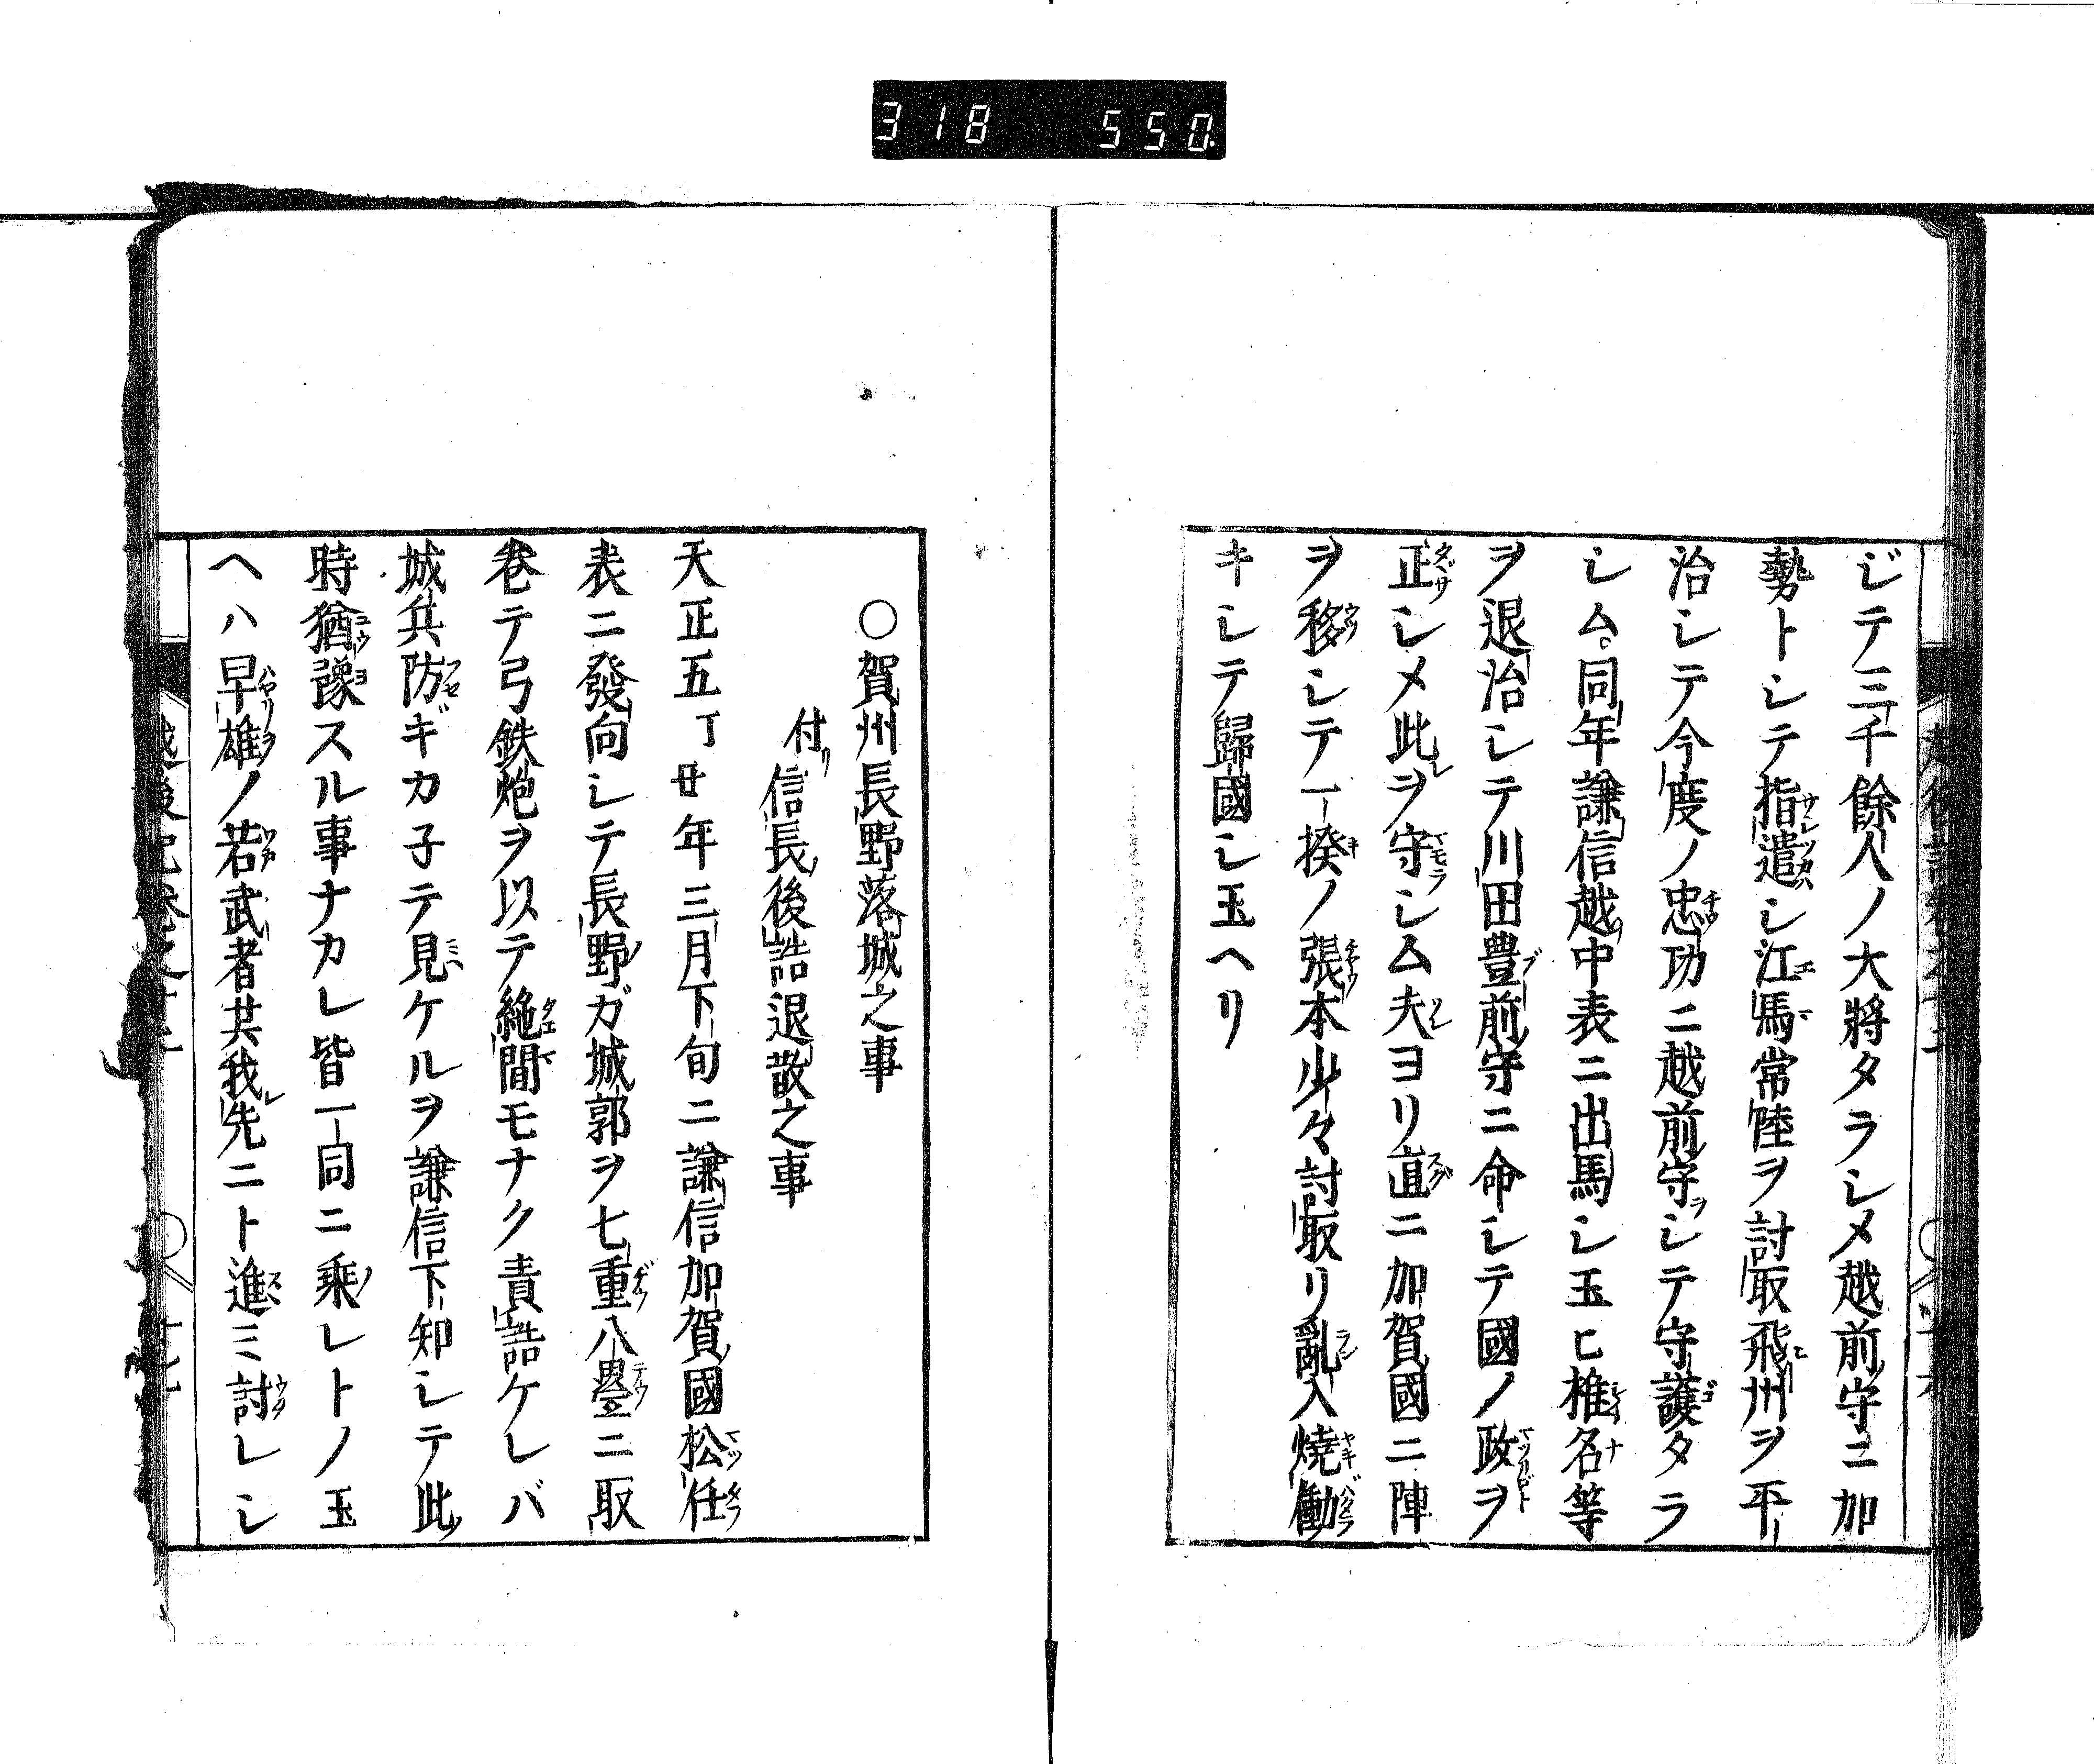 318 550
ジテ三千餘人ノ大將タラシメ越前守ニ加
勢トシテ指遣シ江馬常陸ヲ討取飛州ヲ平
治シテ今度ノ忠功ニ越前守ラシテ守護タラ
シム。同年謙信越中表ニ出馬シ玉ヒ椎名等
ヲ退治シテ川田豊前守ニ命シテ國ノ政ヲ
正シメ此ヲ守シム夫ヨリ直ニ加賀國ニ陣
ヲ移シテ一揆ノ張本少々討取リ亂入燒働
キシテ歸國シ玉ヘリ
○賀州長野落城之事
付リ信長後詰退散之事
天正五丁丑年三月下旬ニ謙信加賀國松任
表ニ發向シテ長野ガ城郭ヲ七重八疊ニ取
巻テ弓鉄炮ヲ以テ絶間モナク責詰ケレバ
城兵防ギカ子テ見ケルヲ謙信下知シテ此
時猶豫スル事ナカレ皆一同ニ乘レトノ玉
ヘハ早雄ノ若武者共我先ニト進ミ討レシ